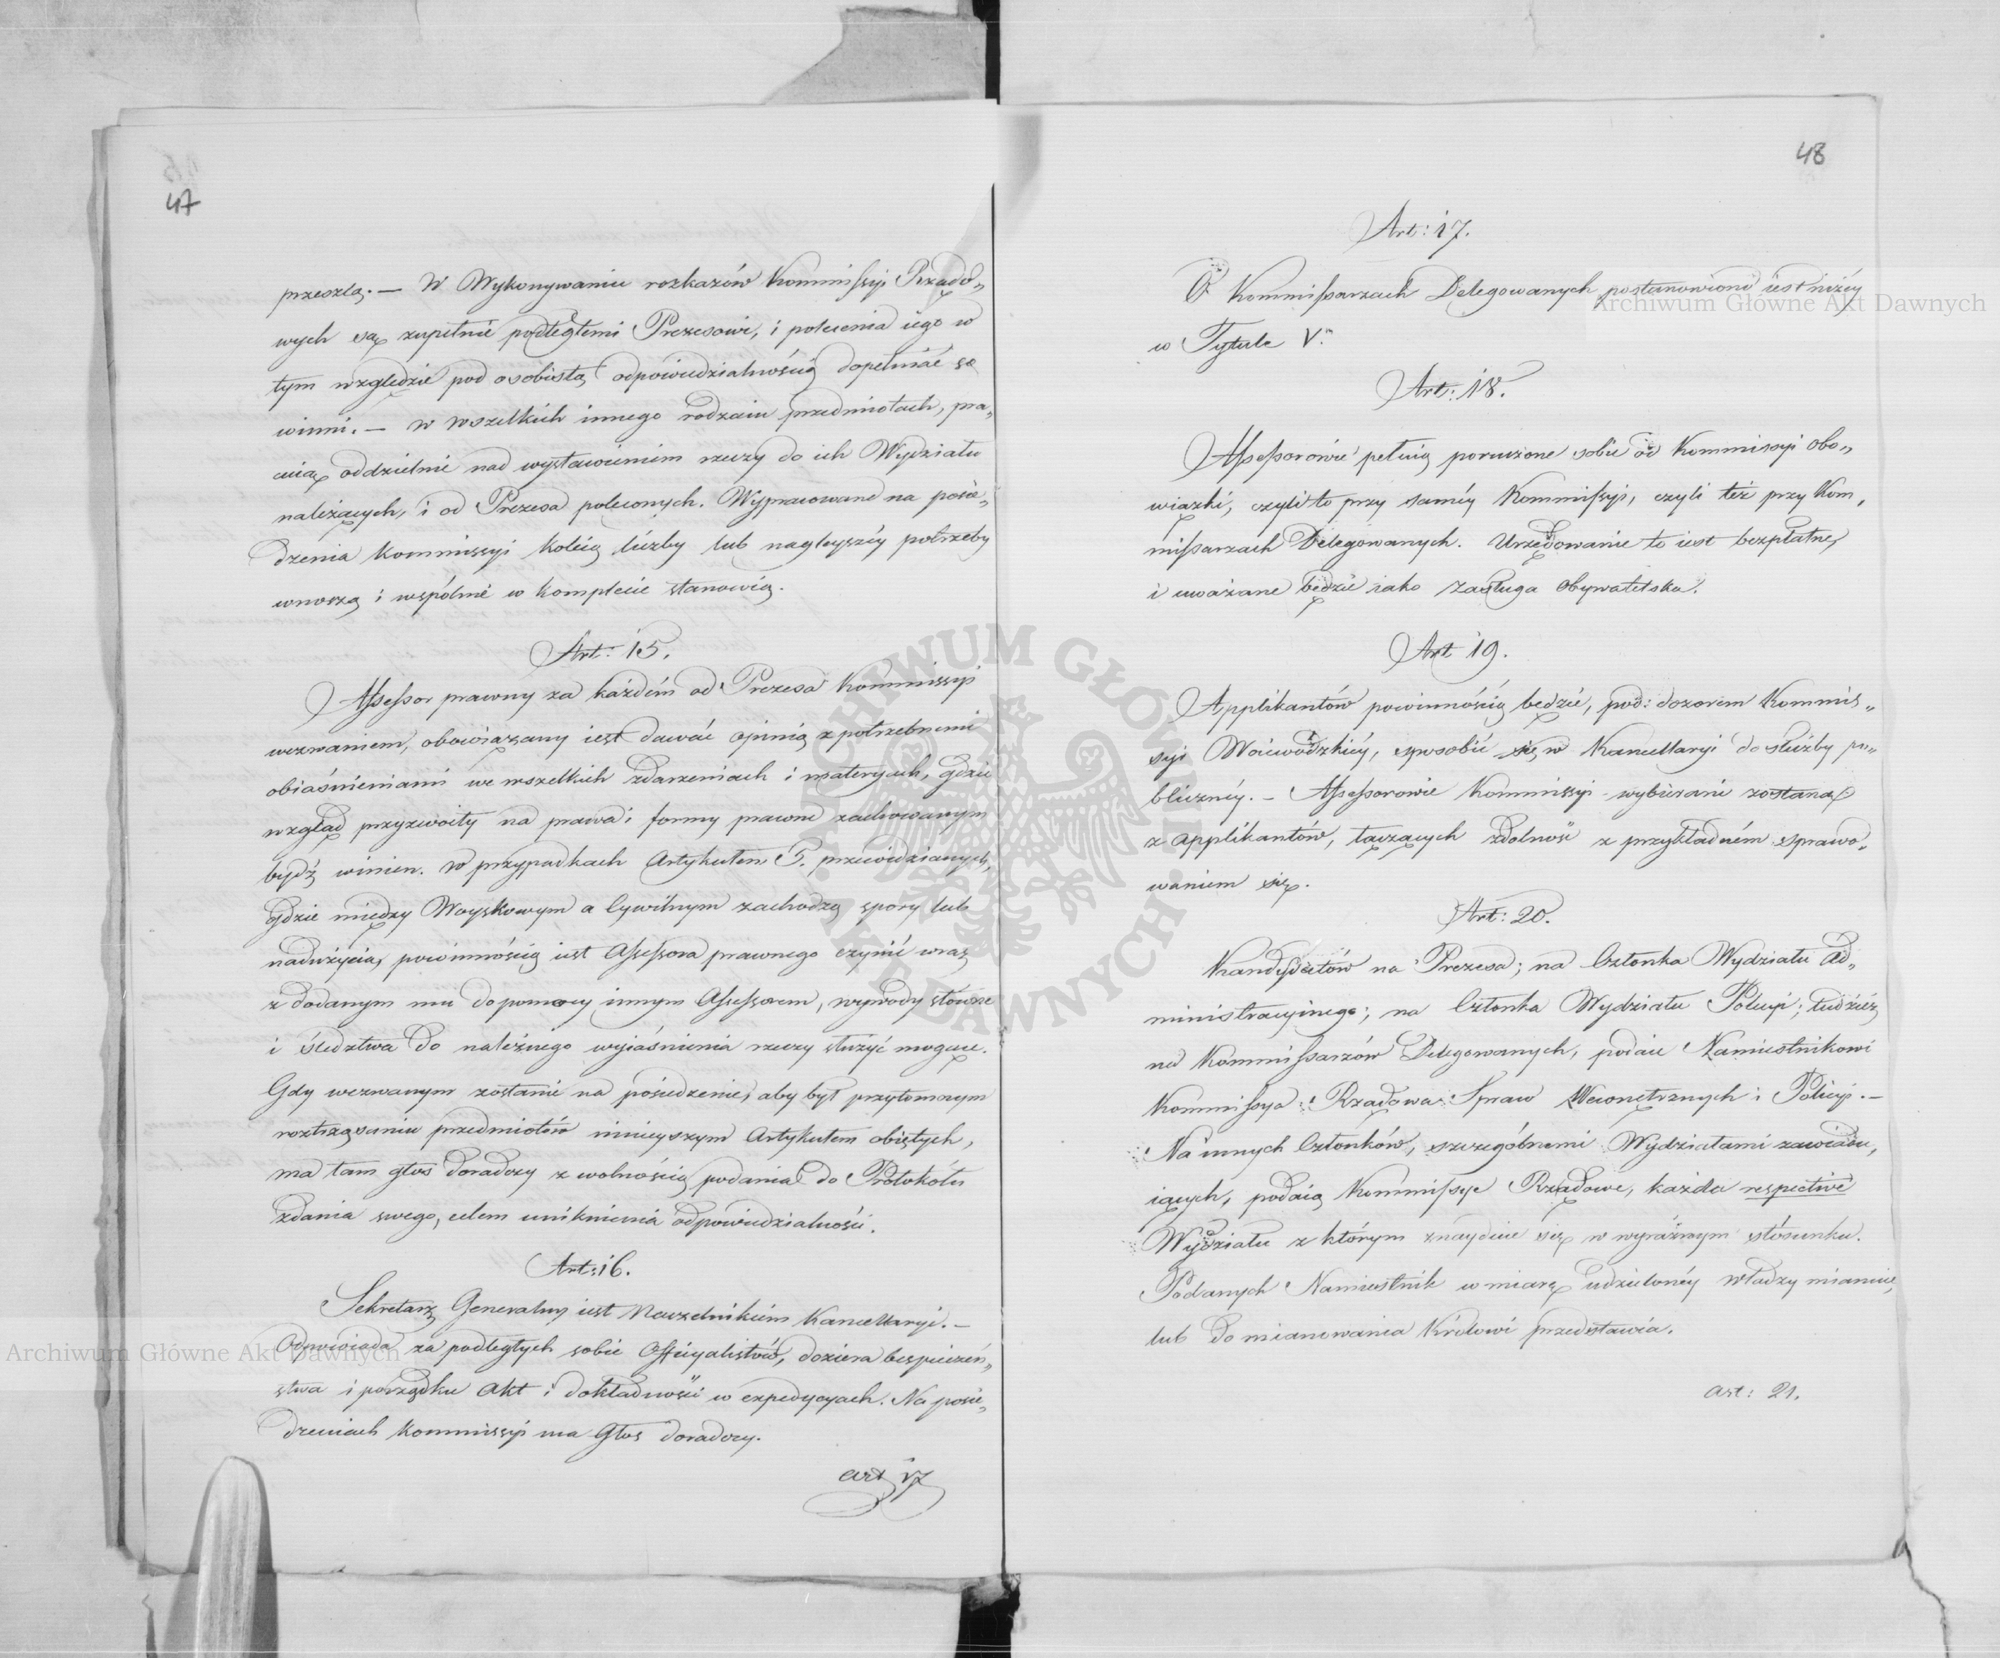 47
przeszłą. — W Wykonywaniu rozkazów Kommissyi Rządo„
wych są zupełnie podległemi Prezesowi, i polecenia iego w
tym względzie pod osobistą odpowiedzialnością dopełniać są
winni. — W wszelkich innego rodzaiu przedmiotach, pra„
cuią oddzielnie nad wystawieniem rzeczy do ich Wydziału
należących, i od Prezesa poleconych. Wypracowane na posie„
dzenia Kommissyi koleią liczby lub nagleyszéy potrzeby
wnoszą i wspólnie w komplecie stanowią.
Art: 15.
Assessor prawny za każdém od Prezesa Kommissyi
wezwaniem, obowiązany iest dawać opinią z potrzebnemi
obiaśnieniami we wszelkich zdarzeniach i materyach, gdzie
wzgląd przyzwoity na prawa i formy prawne zachowanym
bydź winien. W przypadkach Artykułem 5. przewidzianych,
gdzie między Woyskowym a Cywilnym zachodzą spory lub
nadużycia, powinnością iest Assessora prawnego czynić wraz
z dodanym mu do pomocy innym Assessorem, wywody słowne
i śledztwa do należnego wyiaśnienia rzeczy służyć mogące.
Gdy wezwanym zostanie na posiedzenie, aby był przytomnym
roztrząsaniu przedmiotów ninieyszym Artykułem obiętych,
ma tam głos doradczy z wolnością podania do Protokółu
zdania swego, celem uniknienia odpowiedzialności.
Art: 16.
Sekretarz Generalny iest Naczelnikiem Kancellaryi. —
Odpowiada za podległych sobie Officyalistów, doziera bespieczeń„
stwa i porządku Akt i dokładności w expedycyach. Na posie„
dzeniach Kommissyi ma Głos doradczy.
Art 17
48
Art: 17.
O Kommissarzach Delegowanych postanowiono iest niżéy
w Tytule V.
Art: 18.
Assessorowie pełnią poruczone sobie od Kommissyi obo„
wiązki, czyli to przy saméy Kommissyi, czyli też przy Kom„
missarzach Delegowanych. Urzędowanie to iest bezpłatne,
i uważane będzie iako zasługa Obywatelska.
Art 19.
Applikantów powinnością będzie, pod dozorem Kommis„
syi Woiewódzkiéy, sposobić się w Kancellaryi do służby pu„
bliczney. — Assessorowie Kommissyi wybierani zostaną
z applikantów, łączących zdolność z przykładném sprawo„
waniem się.
Art: 20.
Kandydatów na Prezesa; na Członka Wydziału Ad„
ministracyinego; na Członka Wydziału Policyi; tudzież
na Kommissarzów Delegowanych, podaie Namiestnikowi
Kommissya Rządowa Spraw Wewnętrznych i Policyi. —
Na innych Członków, szczególnemi Wydziałami zawiadu„
iących, podaią Kommissye Rządowe, każda respective
Wydziału z którym znayduie się w wyraźnym stósunku.
Podanych Namiestnik w miarę udzielonéy władzy mianuie,
lub do mianowania Królowi przedstawia.
Art: 21.
Archiwum Główne Akt Dawnych
Archiwum Główne Akt Dawnych
ARCHIWUM GŁÓWNE AKT DAWNYCH